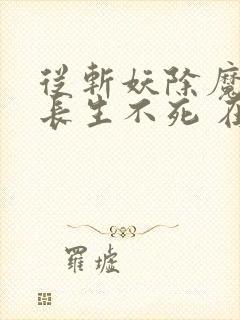 從斬妖除魔
長生不死
羅墟